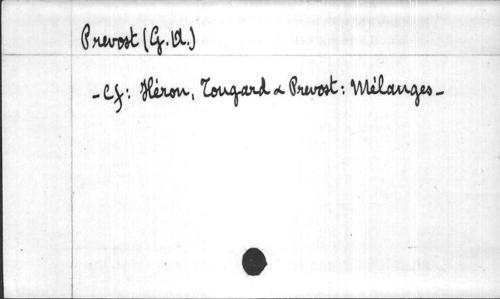 Prevost (G. A.)
- Cf: Héron, Tougard & Prevost: Mélanges -